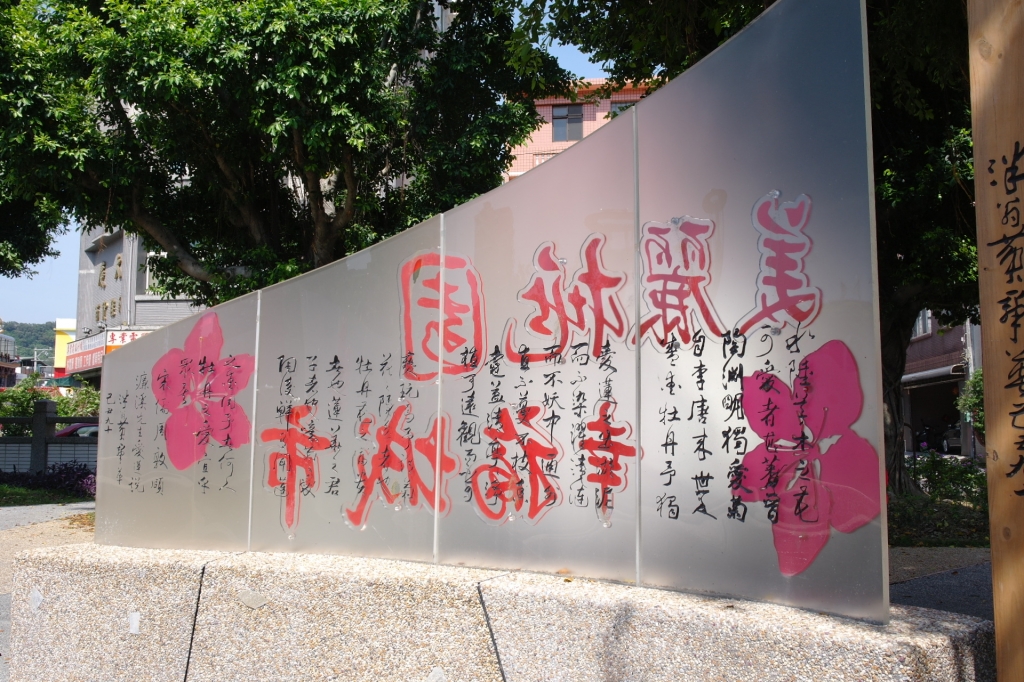 美麗桃園
幸福城市
水陸草木之花
可愛者甚蕃晉
陶淵明獨愛菊
自李唐來世人
盛愛牡丹予獨
愛蓮之出淤泥
而不染濯清漣
而不妖中通外
直不蔓不枝香
遠益清亭亭淨
植可遠觀而不可
褻玩焉予謂菊
花之隱逸者也
牡丹花之富貴
者也蓮花之君
子者也噫菊之愛
陶後鮮有聞蓮
之愛同予者何人
牡丹之愛宜乎
眾矣
宋儒周敦頤
濂溪先生愛蓮說
己丑九十